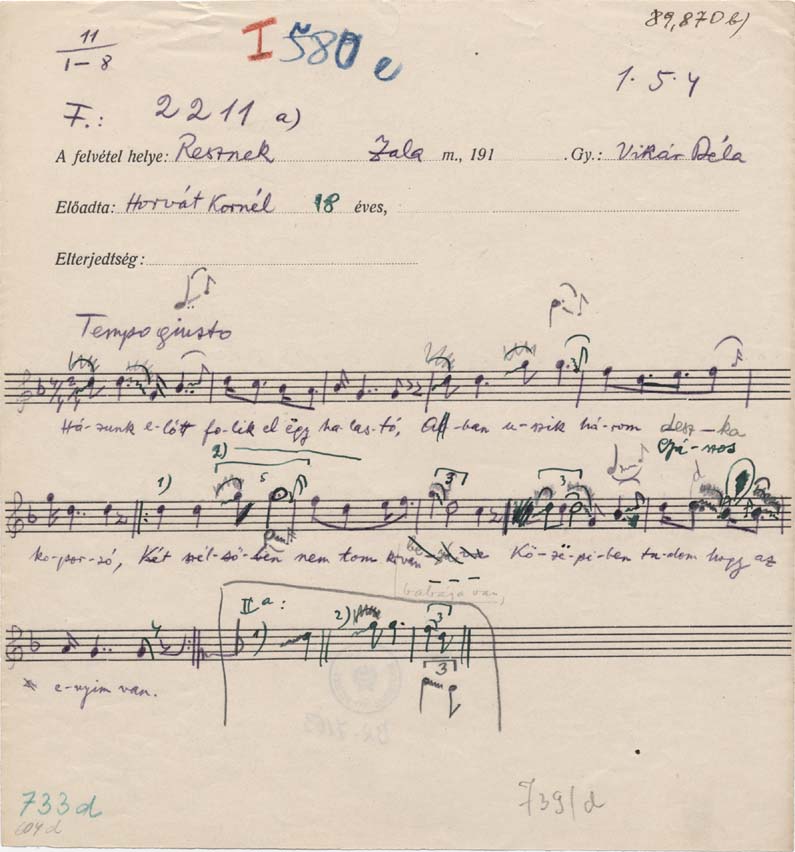 89,870 b)
11
I–8
I 580 e
1.5.4
F.: 2211 a)
A felvétel helye: Resznek Zala m., 191 .Gy.: Vikár Béla
Előadta: Horvát Kornél 18 éves,
Elterjedtség:
Tempo giusto
Há-zunk e-lőtt fo-lik el ëgy ha-las-tó, Ab-ban u-szik há-rom desz-ka
gyá-szos
2)
1) 5 3 3
ko-por-só, Két szél-ső-ben nem tom kivan Kö-zé-pi-ben tu-dom hogy az
babája van,
IIa: 1) 2) 3
3
e-nyim van.
733 d
604 d
739/d